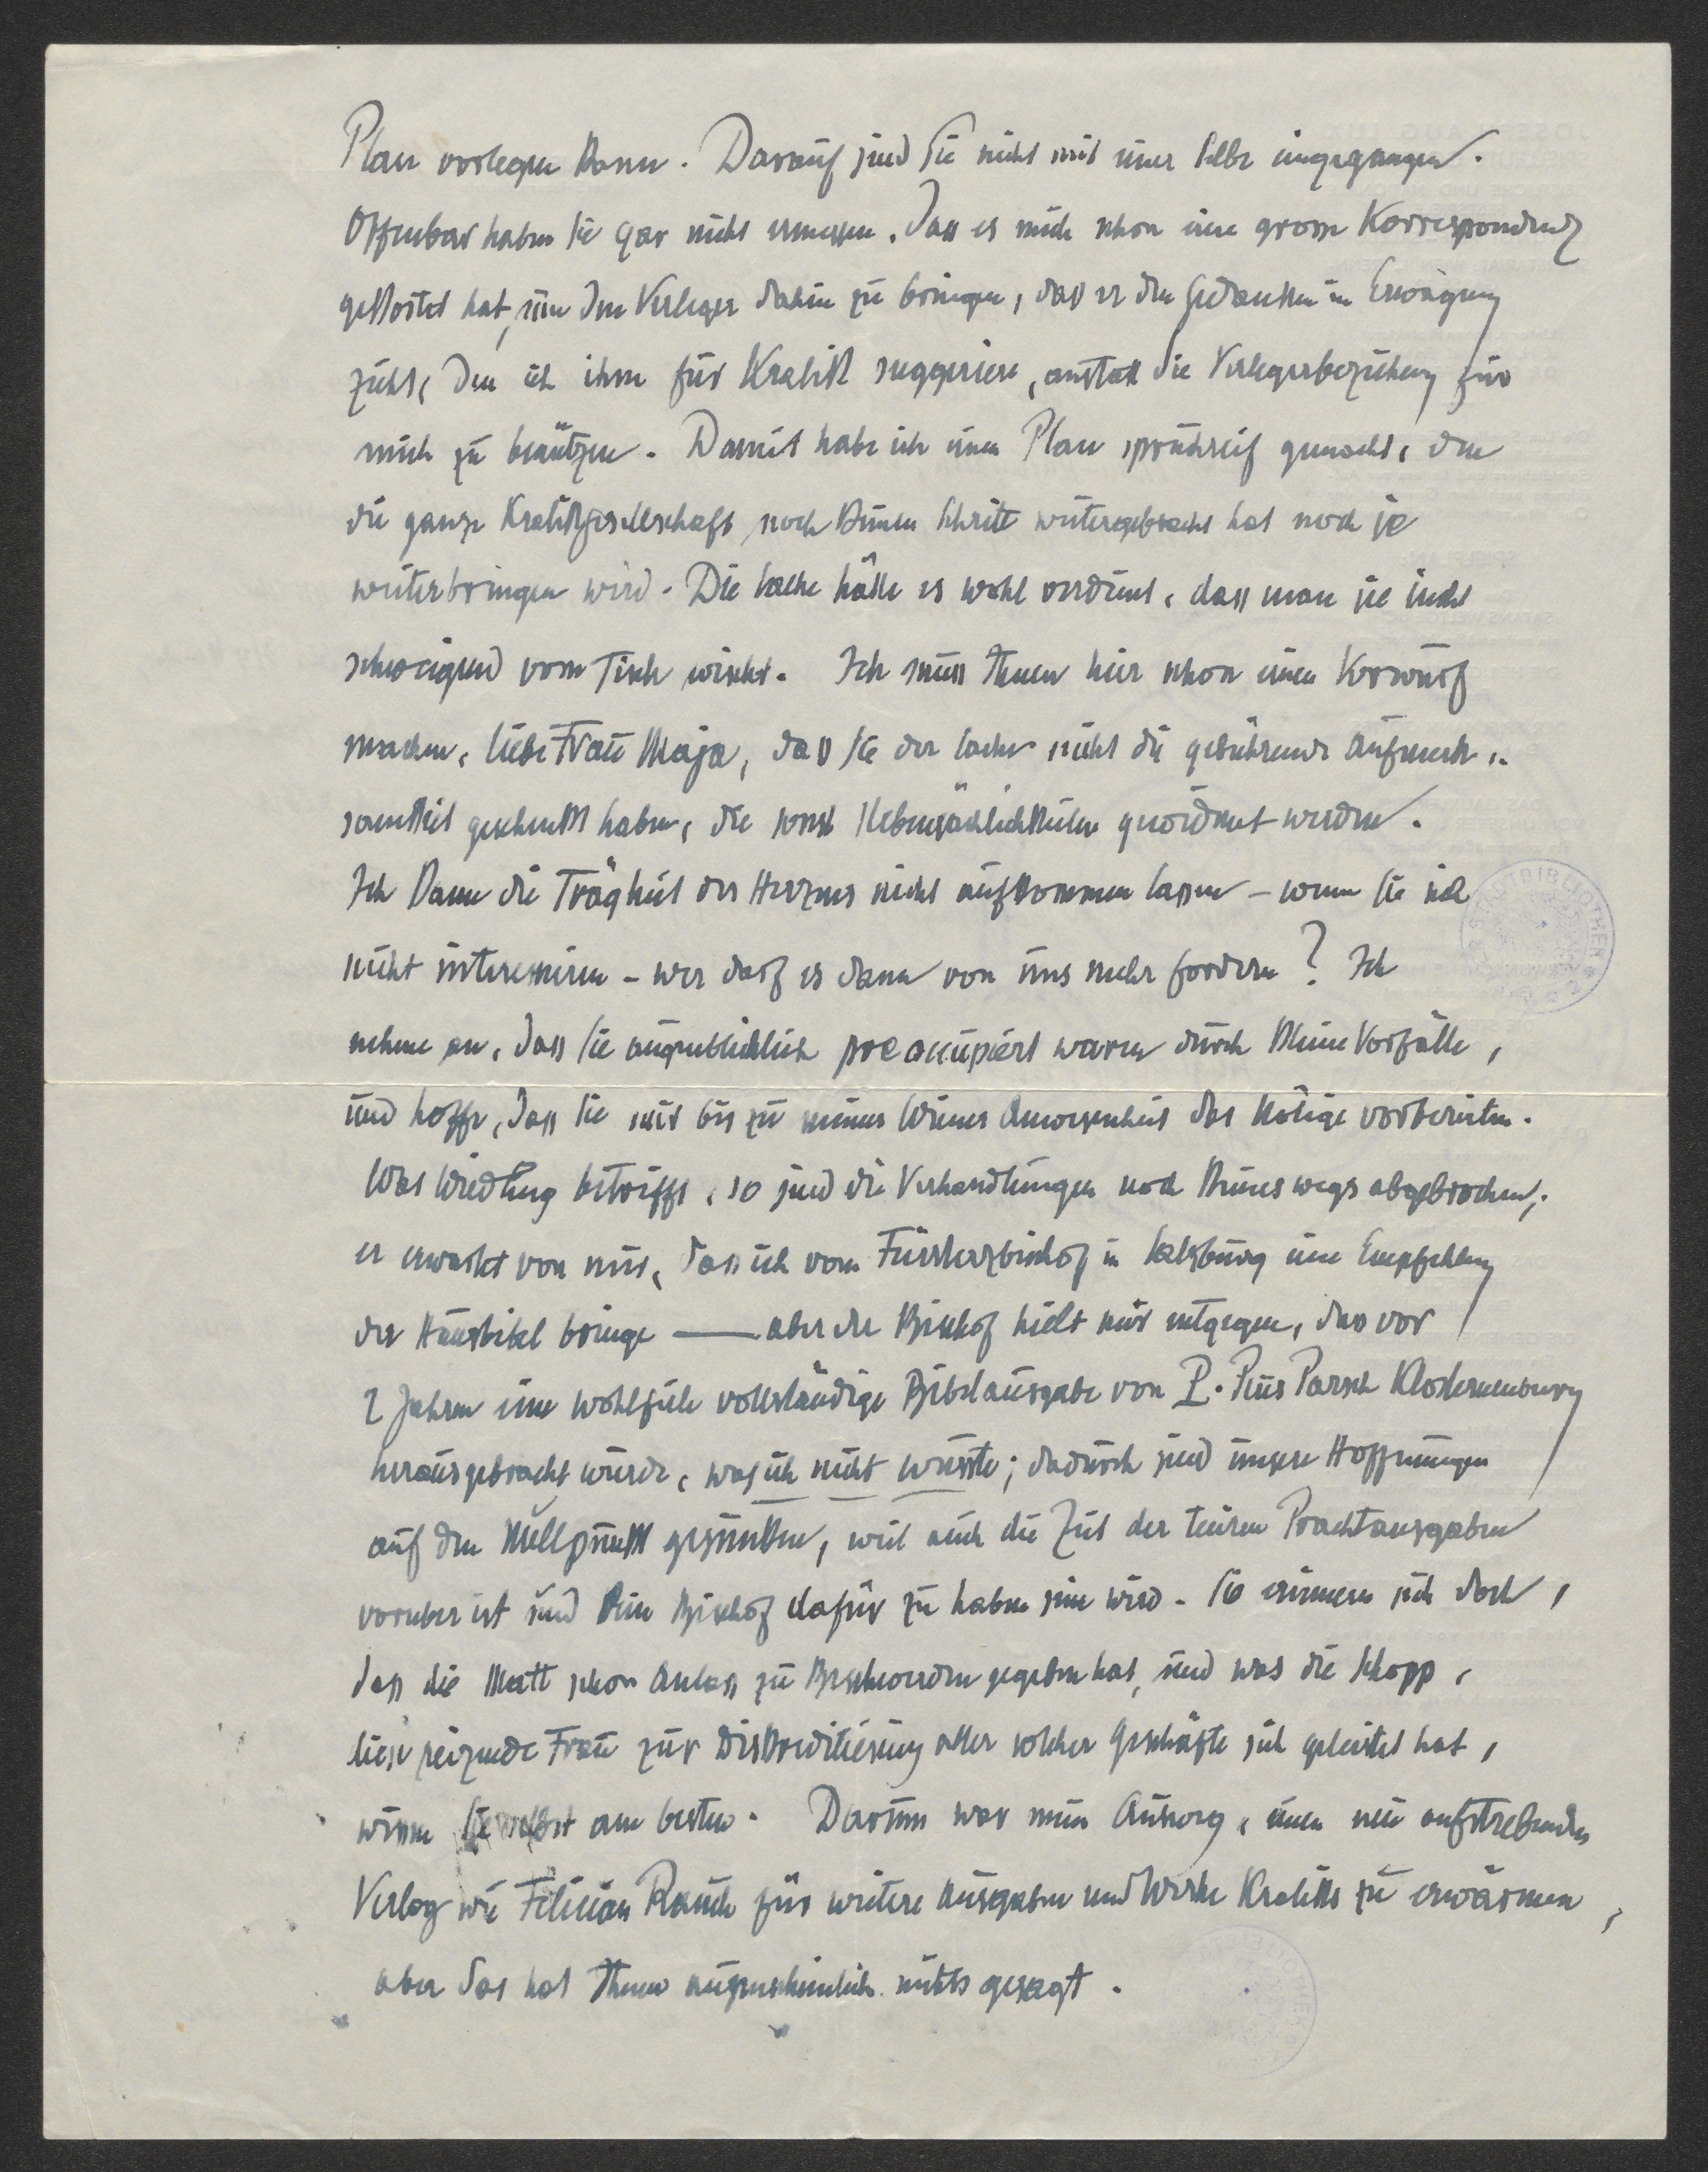 Plan vorlegen kann. Darauf sind Sie nicht mit einer Silbe eingegangen.
Offenbar haben Sie gar nicht ermessen, dass es mich schon eine grosse Korrespondenz
gekostet hat, um den Verleger dahin zu bringen, dass er den Gedanken in Erwägung
zieht, den ich ihm für Kralik suggeriere, anstatt die Verlegerbeziehung für
mich zu benützen. Damit habe ich einen Plan spruchreif gemacht, den
die ganze Kralikgesellschaft noch keinen Schritt weitergebracht hat noch je
weiterbringen wird. Die Sache hätte es wohl verdient, dass man sie nicht
schweigend vom Tisch wischt. Ich muss Ihnen hier schon einen Vorwurf
machen, liebe Frau Maja, dass Sie der Sache nicht die gebührende Aufmerk-
samkeit geschenkt haben, die sonst Nebensächlichkeiten gewidmet werden.
Ich kann die Trägheit des Herzens nicht aufkommen lassen – wenn Sie sich
nicht interessieren – wer darf es dann von uns mehr fordern? Ich
nehme an, dass Sie augenblicklich preoccupiert waren durch kleine Vorfälle,
und hoffe, dass Sie mir bis zu meiner Wiener Anwesenheit das Nötige vorbereiten.
Was Wiedling betrifft, so sind die Verhandlungen noch keineswegs abgebrochen;
er erwartet von mir, dass ich vom Fürsterzbischof in Salzburg eine Empfehlung
der Hausbibel bringe — aber der Bischof hielt mir entgegen, dass vor
2 Jahren eine wohlfeile vollständige Bibelausgabe von P. Pius Parsch Klosterneuburg
herausgebracht wurde, was ich nicht wusste; dadurch sind unsere Hoffnungen
auf den Nullpunkt gesunken, weil auch die Zeit der teuren Prachtausgaben
vorüber ist und kein Bischof dafür zu haben sein wird. Sie erinnern sich doch,
dass die Matt schon Anlass zu Beschwerden gegeben hat, und was die Schopp,
diese reizende Frau zur Diskreditierung aller solcher Geschäfte sich geleistet hat,
wissen Sie selbst am besten. Darum war mein Ausweg, einen neu aufstrebenden
Verlag wie Felician Rauch für weitere Ausgaben und Werke Kraliks zu erwärmen,
aber das hat Ihnen augenscheinlich nichts gesagt.